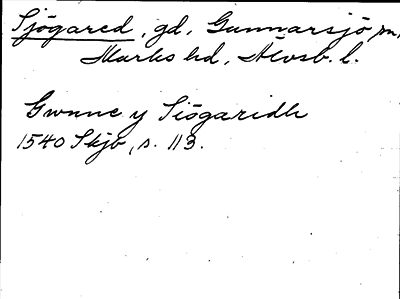 Sjögared, gd, Gunnarsjö sn,
Marks hd, Älvsb. l.
Gwnne y Siögaridh
1540 Skjb, s. 113.